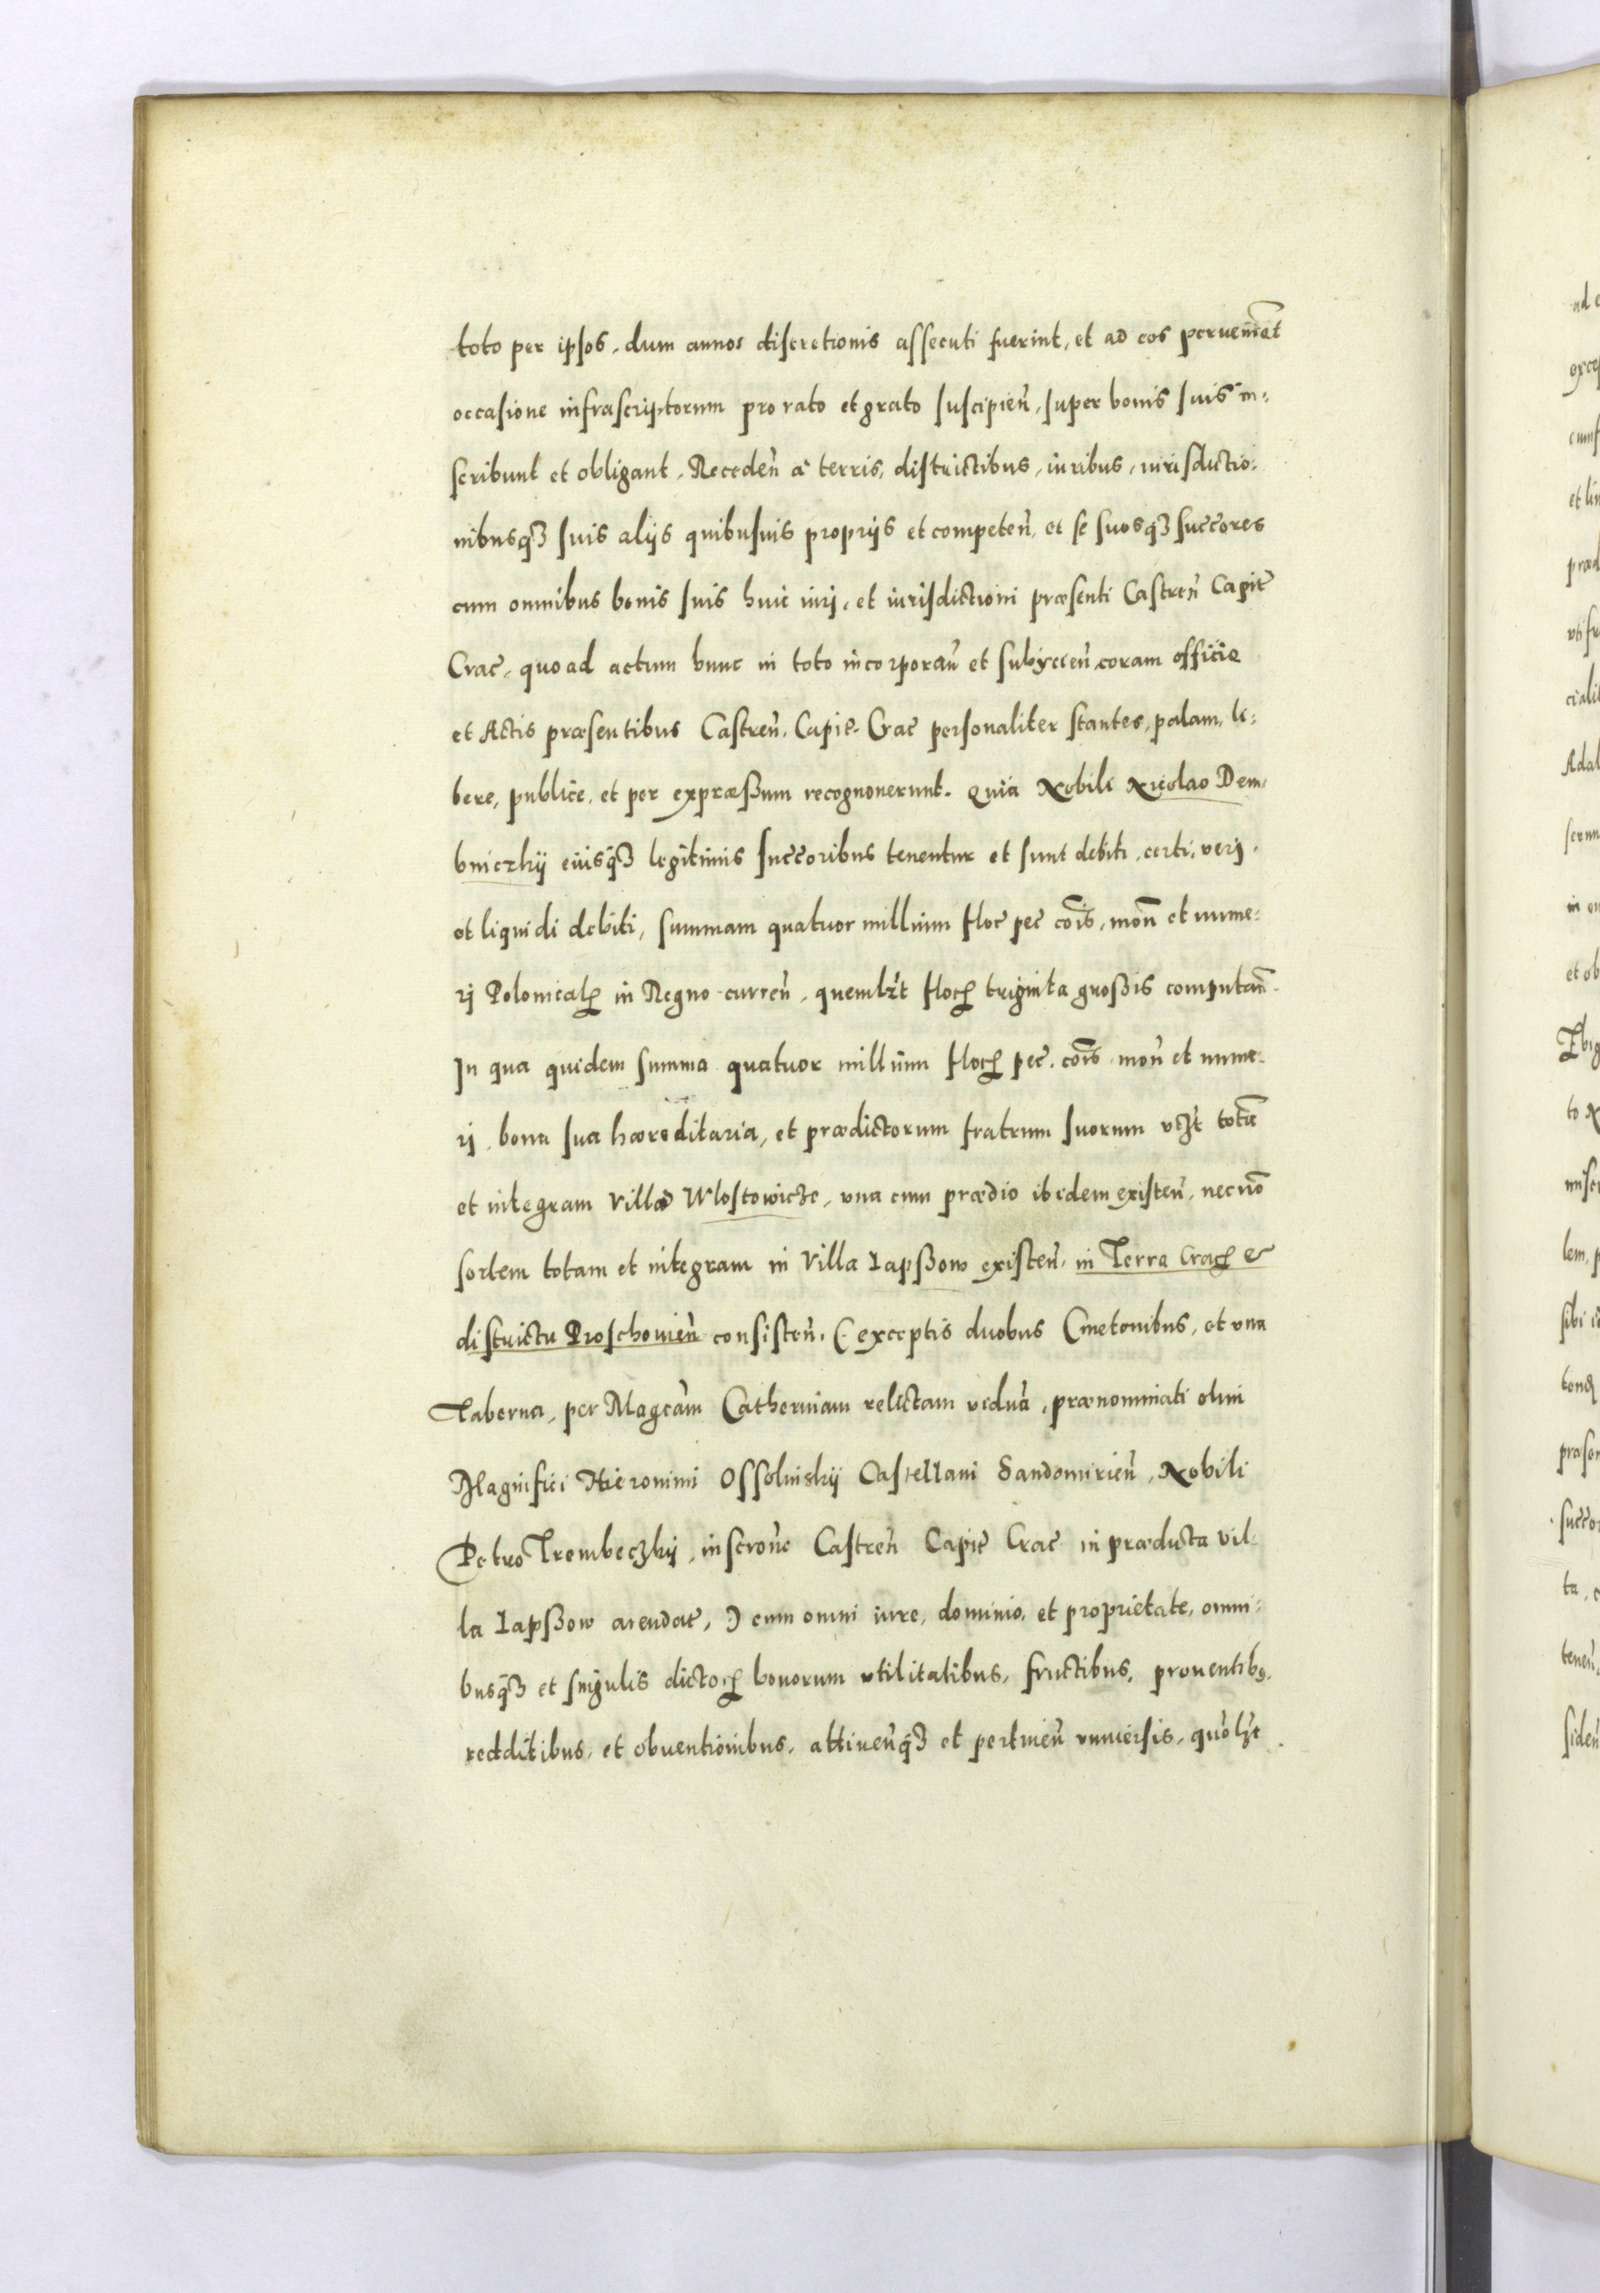 toto per ipsos, dum annos discretionis assecuti fuerint, et ad eos pervenient
occasione infrascriptorum pro rato et grato suscipień, super bonis suis in=
scribunt et obligant, Recedeń a terris, districtibus, iuribus, iurisdictio=
nibusqꝫ suis alijs quibusuis proprijs et competeń, et se suosqꝫ succores
cum omnibus bonis suis huic iuri, et iurisdictioni præsenti Castreń Capit̄
Crac̄, quo ad actum hunc in toto incorporań et subijcień, coram officio
et Actis præsentibus Castreń, Capit̄ Crac̄ personaliter stantes, palam, li=
bere, publice, et per expræßum recognouerunt. Quia Nobili Nicolao Dem=
bniczkij eiusqꝫ legitimis succoribus tenentur et sunt debiti, certi, veri,
et liquidi debiti, summam quatuor millium floc̄ pec̄ cōis, mon̄ et nume=
ri Polonicalꝝ in Regno curreń, quemlꝫt flocꝝ triginta großis computań.
In qua quidem summa quatuor millium flocꝝ pec̄. cōis mon̄ et nume=
ri, bona sua hæreditaria, et prædictorum fratrum suorum vꝫt totā
et integram Villā Wlostowicze, una cum prædio ibidem existeń, necnō
sortem totam et integram in Villa Iapßow existeń, in Terra Cracꝝ &
districtu Proschouień consisteń, (exceptis duobus Cmetonibus, et una
Taberna, per Magcām Catherinam relictam viduā, prænominati olim
Magnifici Hieronimi Ossolinskij Castellani Sandomirień, Nobili
Petro Trembeczkij, inscrōne Castreń Capit̄ Crac̄ in prædicta vil=
la Iapßow arendat̄,) cum omni iure, dominio, et proprietate, omni=
busqꝫ et singulis dictoꝝ bonorum vtilitatibus, fructibus, prouentibꝰ,
redditibus, et obuentionibus, attineńqꝫ et pertineń vniuersis, quōlꝫt